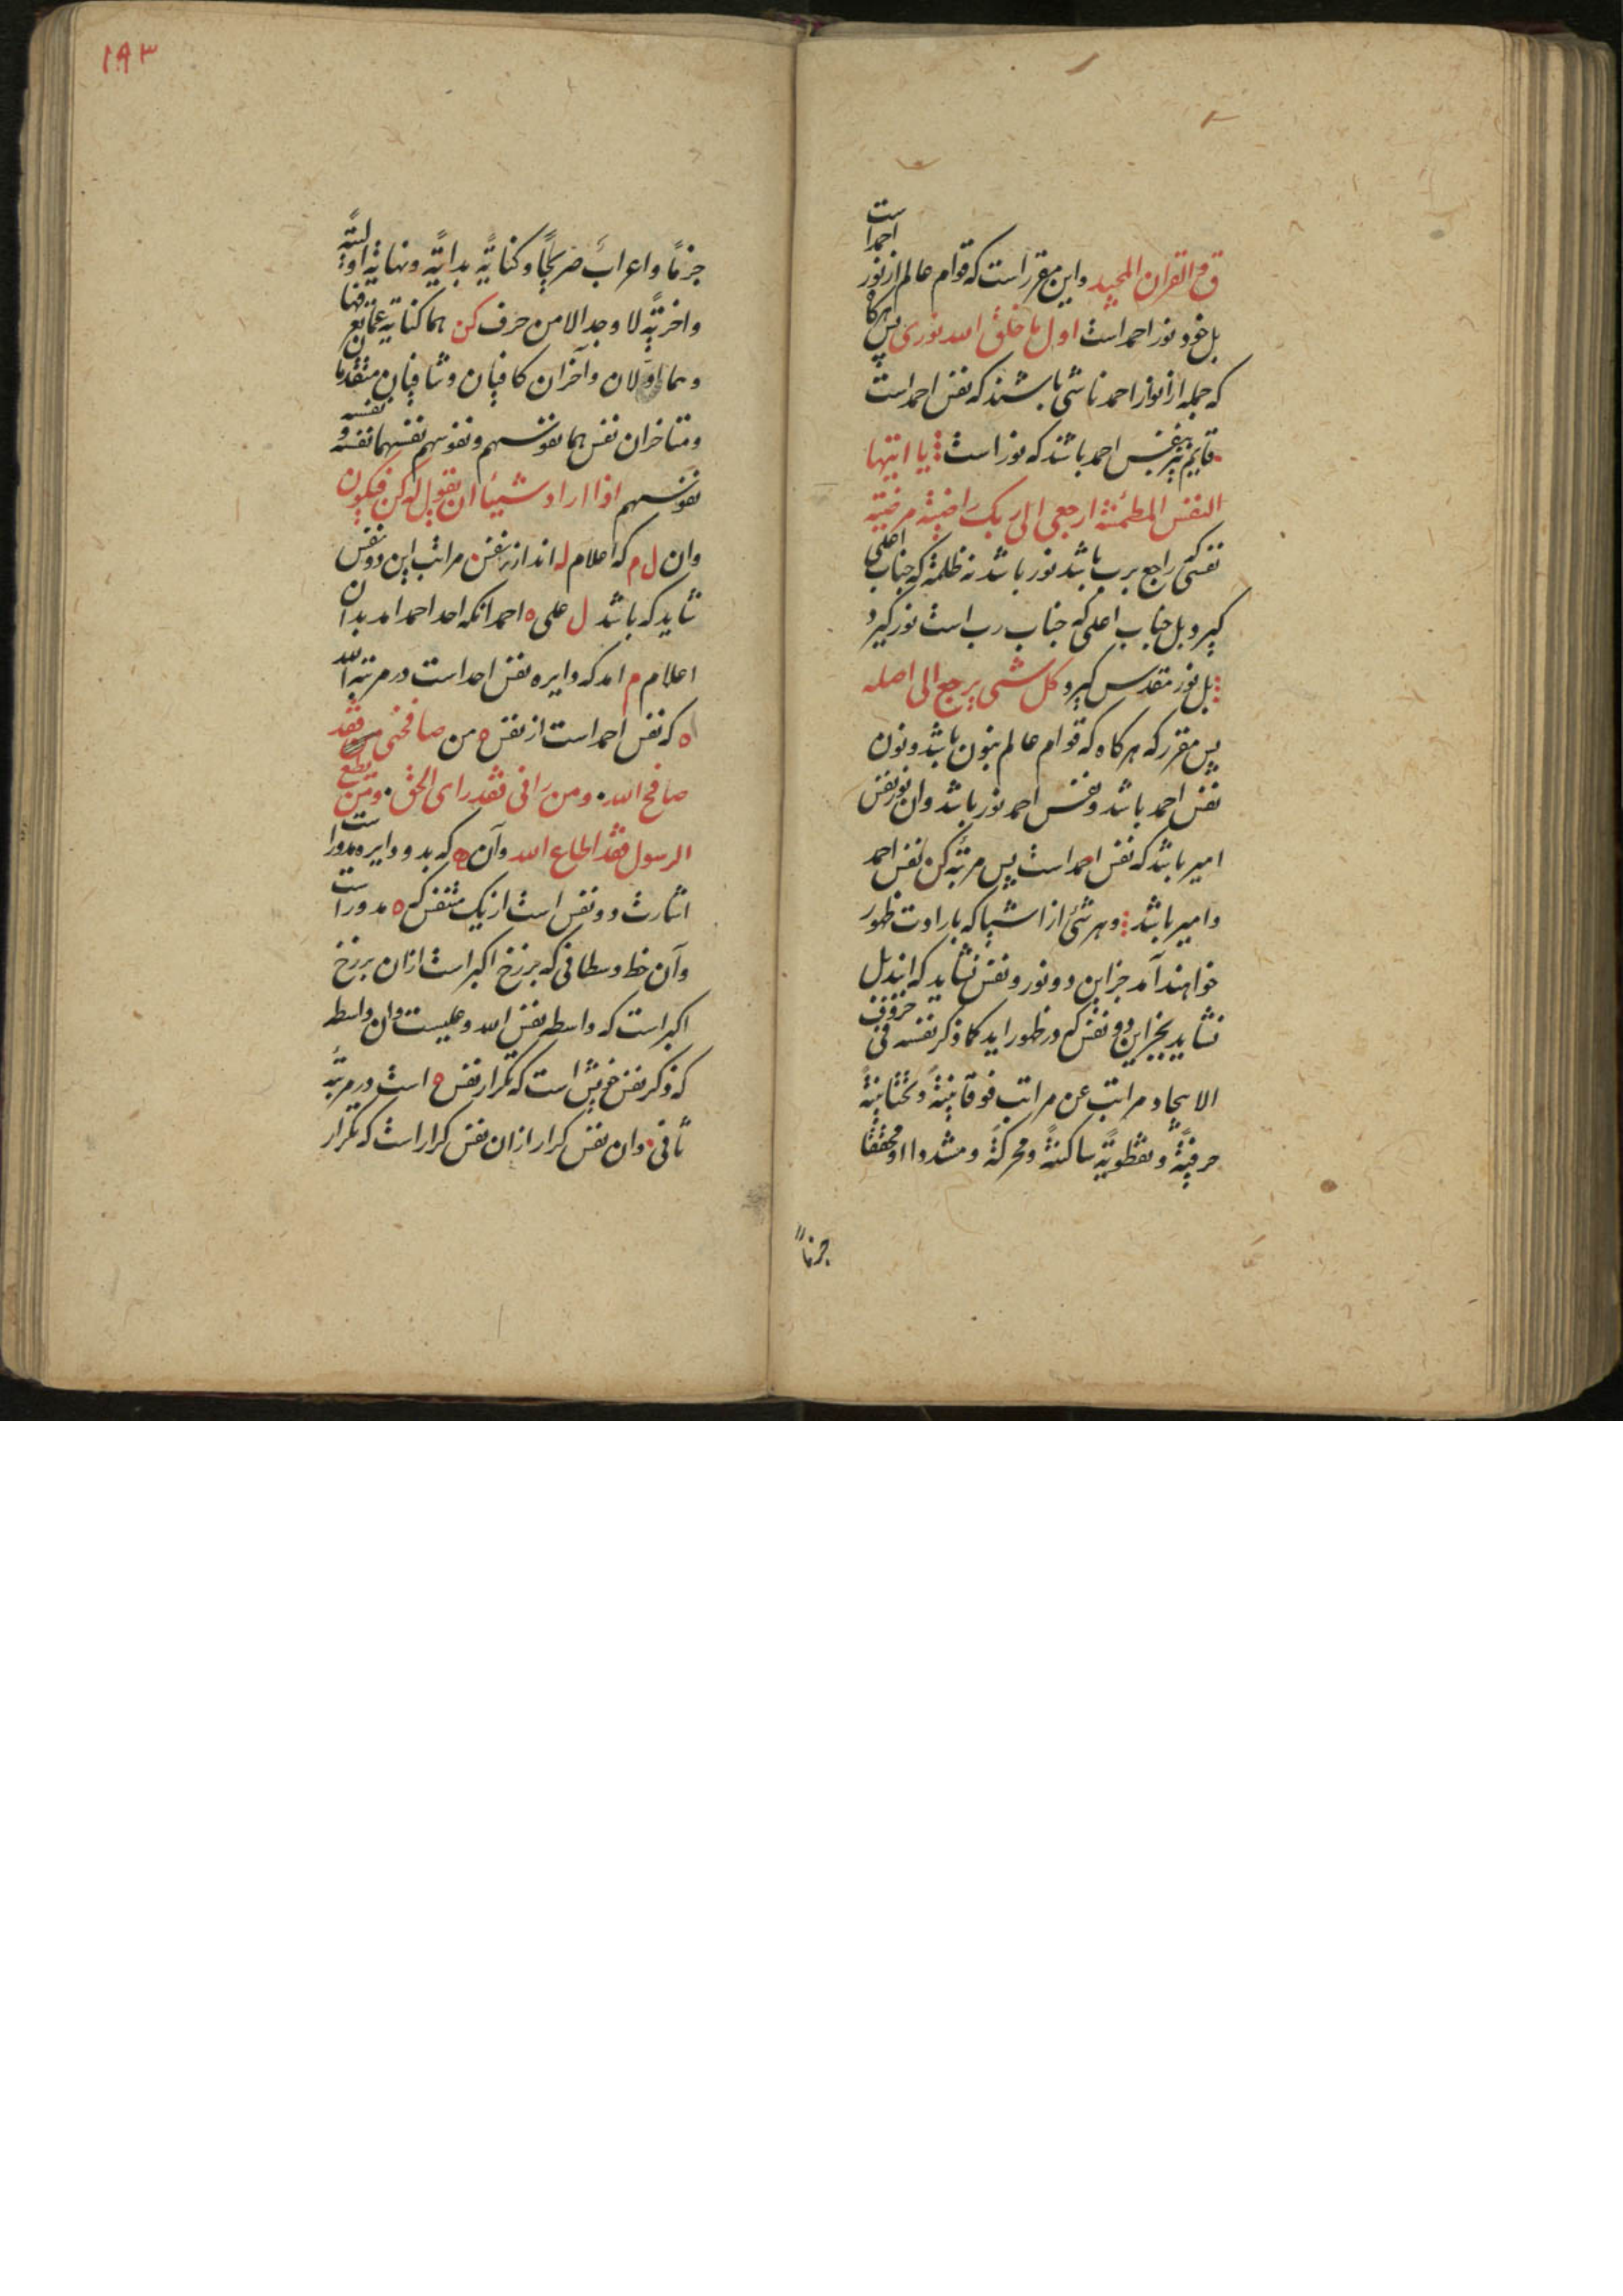 ق والقران المجید واین مقرر است که قوام عالم از نور احمد است
بل خود نور احمد است اول ما خلق الله نوری پس هرکاه
که جمله از انوار احمد ناشی باشند که نفس احمد است
قایم بنفس احمد باشند که نور است یا ایتها
النفس المطمئنة ارجعی الی ربک راضیة مرضیة
نفسی که راجع برب باشد نور باشد نه ظلمة که جناب اعلی
کیرد بل جناب اعلی که جناب رب است نور کیرد
بل نور مقدس کیرد کل شی یرجع الی اصله
پس مقرر که هرکاه که قوام عالم بنون باشد ونون
نفس احمد باشد ونفس احمد نور باشد وان نور نفس
امیر باشد که نفس احمد است پس مرتبه کن نفس احمد
وامیر باشد وهر شئ از اشیا که بارادت ظهور
خواهند آمد جز این دو نور ونفس نشاید که ایند بل
نشاید بجز این دو نفس که در ظهور اید کما ذکر نفسه فی حروف
الایجاد مراتب عن مراتب فوقانیة وتحتانیة
حرفیة ونقطویة ساکنة ومحرکة ومشددا او مخففا
جزما
۱۹۳
جزما واعراب صریحا وکنایة بدایة ونهایة اولیة
واخریة لا وجد الا من حرف کن هما کنایة عما یقع فیها
وهما اولان وآخران کافیان وشافیان متقدمان
ومتاخران نفس هما نفوسهم ونفوسهم نفسهما نفسه ونفسه
نفوسهم اذا اراد شیئا ان یقول له کن فیکون
وان ل م که اعلام له اند از نفس مراتب این دو نفس
شاید که باشد ل علی ه احمد انکه احد احمد امد بدان
اعلام م امد که دایره نفس احد است در مرتبه الله
ه که نفس احمد است از نفس ه من صافحنی فقد
صافح الله ومن رانی فقد رای الحق ومن یطع
الرسول فقد اطاع الله وآن ه که بدو دایره مدور است
اشارت دو نفس است از یک متنفس که ه مدور است
وآن خط وسطانی که برزخ اکبر است ازان برزخ
اکبر است که واسطه نفس الله وعلیست وان واسطه
که ذکر نفس خویش است که تکرار نفس ه است در مرتبه
ثانی وان نفس کرار ازان نفس کرار است که تکرار